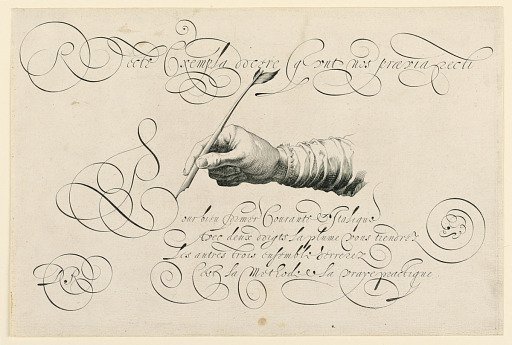 Recte Exempla docere nos prævia recti
Pour bien former Courante & Italique
Avec deux doigts la plume vous tiendrez
Les autres trois ensemble serrerez
C'est la Methode & la vraye practique.